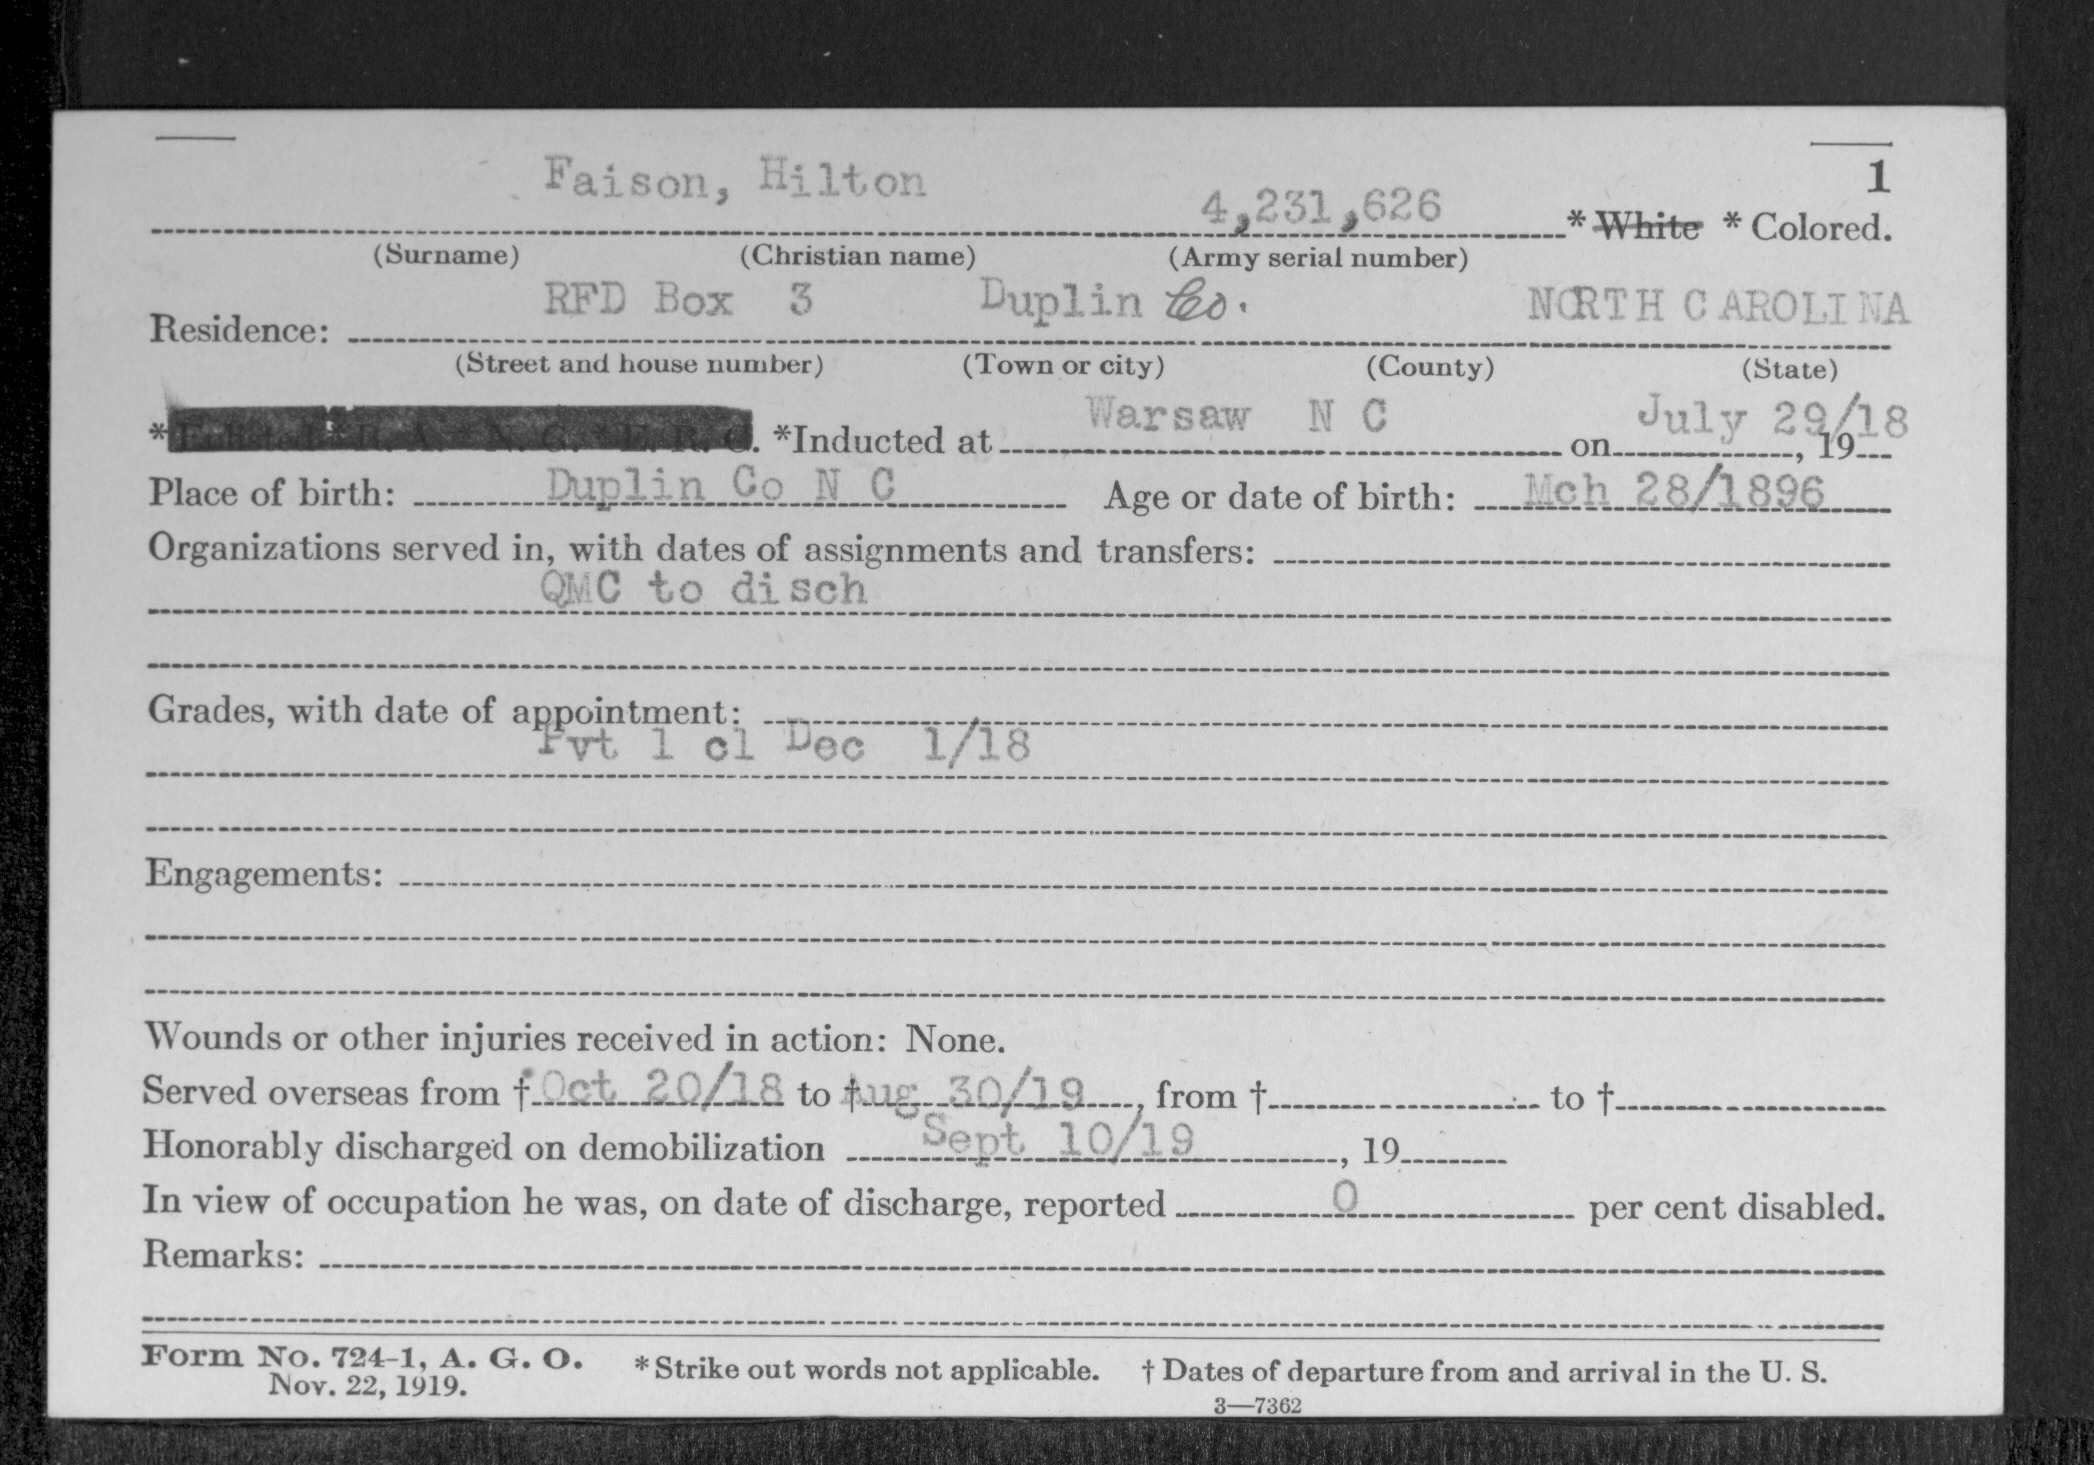 Faison, Hilton 4,231,626 1
* White * Colored.
(Surname) (Christian name) (Army serial number)
RFD Box 3 Duplin Co. NORTH CAROLINA
Residence:
(Street and house number) (Town or city) (County) (State)
* Enlisted * R. A. * N. G. * E. R. C. *Inducted at Warsaw N C on July 29/18, 19
Place of birth: Duplin Co N C Age or date of birth: Mch 28/1896
Organizations served in, with dates of assignments and transfers:
QMC to disch
Grades, with date of appointment:
Pvt 1 cl Dec 1/18
Engagements:
Wounds or other injuries received in action: None.
Served overseas from † Oct 20/18 to † Aug 30/19, from † to †
Honorably discharged on demobilization Sept 10/19, 19
In view of occupation he was, on date of discharge, reported 0 per cent disabled.
Remarks:
Form No. 724-1, A. G. O. * Strike out words not applicable. † Dates of departure from and arrival in the U. S.
Nov. 22, 1919.
3—7362